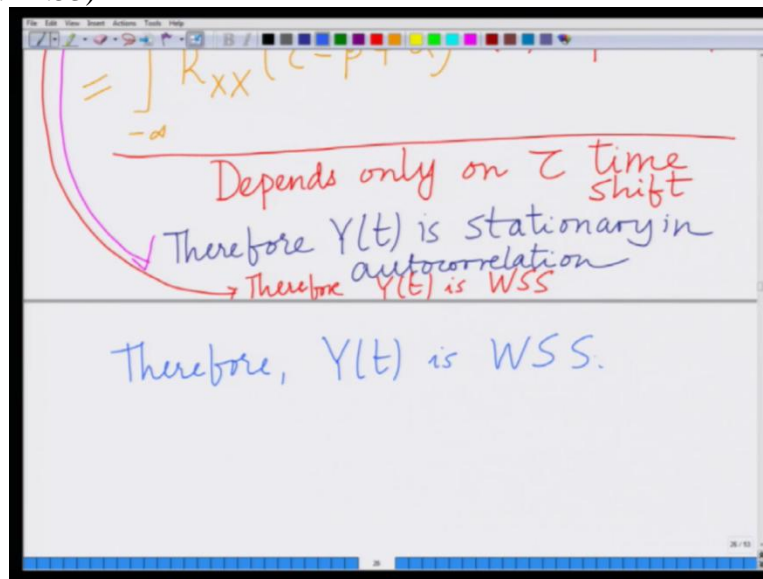 File Edit View Insert Actions Tools Help
= ∫ R_XX (τ-β+α)
-∞
Depends only on τ time
shift
Therefore Y(t) is stationary in
autocorrelation
→ Therefore Y(t) is WSS
Therefore, Y(t) is WSS.
26 / 53
26